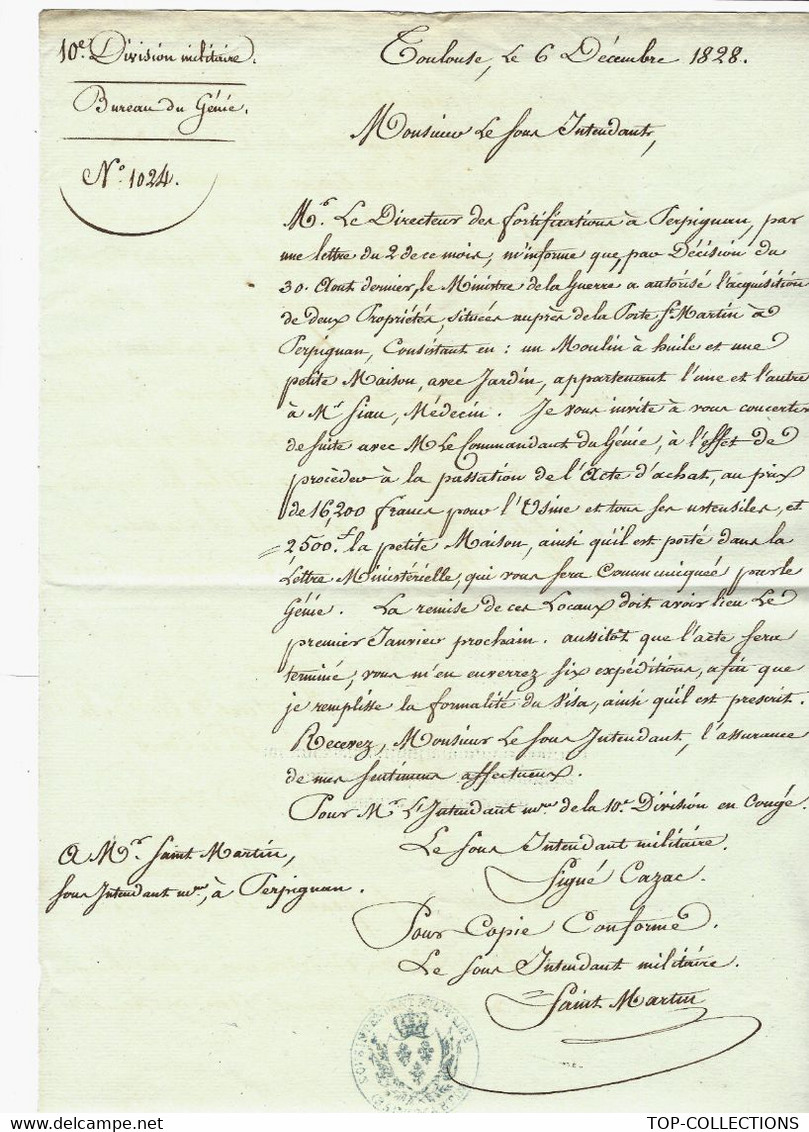 10e. Division militaire.
Bureau du Génie.
N° 1024.
Toulouse, le 6 Décembre 1828.
Monsieur Le sous Intendant,
Mr. Le Directeur des fortifications à Perpignan, par
une lettre du 2 de ce mois, m'informe que, par Décision du
30. Aout dernier, le Ministre de la Guerre a autorisé l'acquisition
de deux Propriétés, situées auprès de la Porte St. Martin à
Perpignan, Consistant en : un Moulin à huile et une
petite Maison, avec Jardin, appartenant l'une et l'autre
à Mr Siau, Médecin. Je vous invite à vous concerter
de suite avec Mr Le Commandant du Génie, à l'effet de
procèder à la passation de l'Acte d'achat, au prix
de 16,200 francs pour l'Usine et tous ses ustensiles, et
2500.f la petite Maison, ainsi qu'il est porté dans la
Lettre Ministérielle, qui vous sera Communiquée par le
Génie. La remise de ces Locaux doit avoir lieu Le
premier Janvier prochain. aussitot que l'acte sera
terminé, vous m'en enverrez six expéditions, afin que
je remplisse la formalité du Visa, ainsi qu'il est prescrit.
Recevez, Monsieur Le sous Intendant, l'assurance
de mes sentimens affectueux.
Pour Mr. L'Intendant mre de la 10e. Division en Congé.
Le sous Intendant militaire.
Signé Cazac.
A Mr. Saint Martin,
sous Intendant mre, à Perpignan.
Pour Copie Conforme.
Le sous Intendant militaire.
Saint Martin
TOP-COLLECTIONS